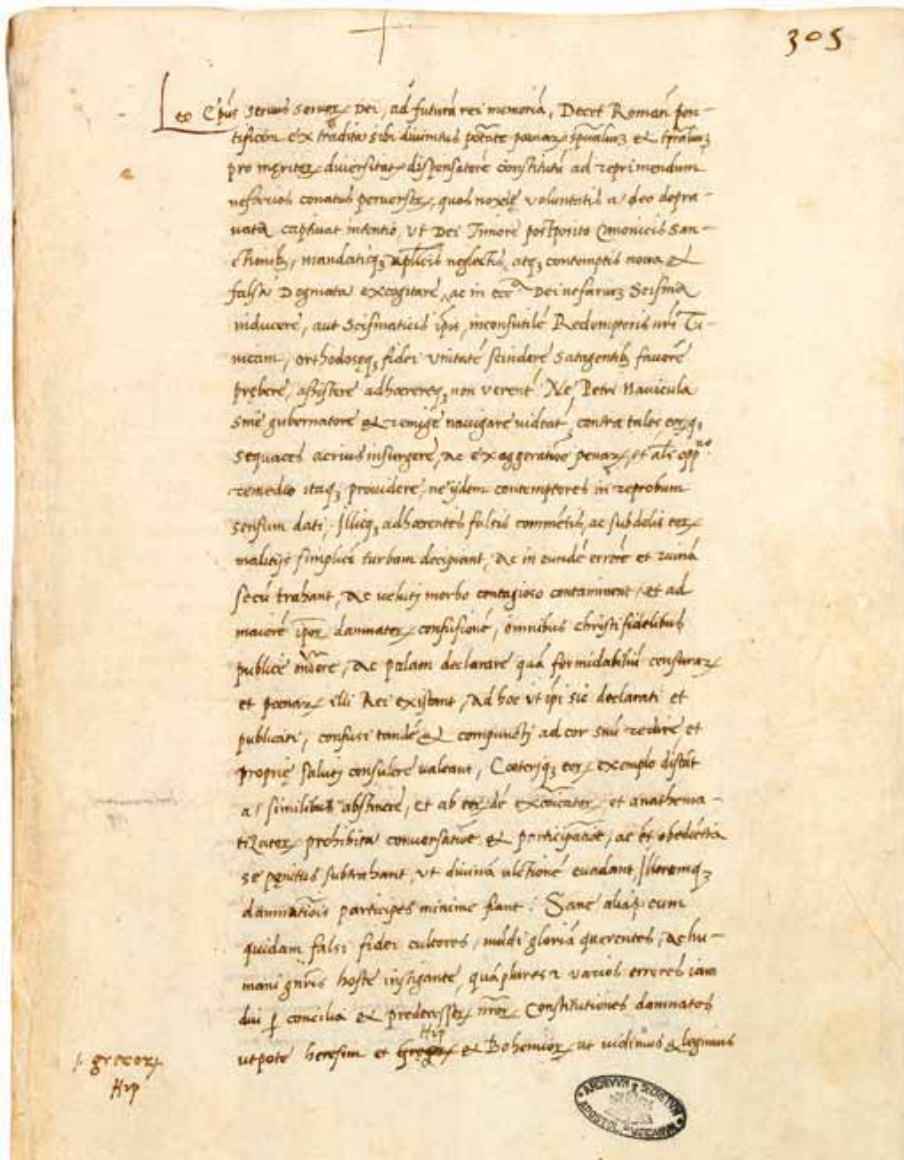 305
Leo Ep̃us Servus Servoꝝ Dei, ad futurã rei memoriã, Decet Romanũ pon-
tificem ex tradita sibi divinitus potẽte poenaꝝ sp̃ualiuꝫ et tp̃raliuꝫ
pro meritoꝝ diversitate dispensatorẽ constitutũ ad reprimendum
nefarios conatus perversoꝝ, quos noxię voluntatis a deo depra-
vata captivat intentio, ut Dei Timore postposito Canonicis San-
ctionibꝫ, mandatisqꝫ ap̃licis neglectis, atqꝫ contemptis nova et
falsa Dogmata excogitare, ac in eccᵃ Dei nefariuꝫ Scisma
inducere, aut Scismaticis ip̃is, inconsutilẽ Redemptoris nr̃i Tu-
nicam, orthodoxęqꝫ fidei unitatẽ scindere satagentibꝫ favorẽ
pręberẽ, assistere adhaerereqꝫ non verent.́ Ne Petri Navicula
sine gubernatore et remige navigare videat,́ contra tales, eoꝝqꝫ
sequaces acrius insurgere, ac exaggeratioe penaꝝ, et al̃s oppⁿᵒ
remedio itaqꝫ providere, ne ijdem contemptores in reprobum
sensum dati, Illisqꝫ adhaerentes falsis commẽtis, ac subdolis eoꝝ
malitijs simplicẽ turbam decipiant, ac in eundẽ errorẽ et ruinã
secũ trahant, ac veluti morbo contagioso contaminent, et ad
maiorẽ ip̃oꝝ damnatoꝝ confusionẽ, omnibus christi fidelibus
publice ondere, ac palam declarare quã formidabiliũ censuraꝝ
et poenaꝝ illi Rei existant, ad hoc ut ip̃i sic declarati et
publicati, confusi tandẽ et compuncti ad cor suũ redire et
proprię saluti consulere valeant, Coeteriqꝫ eoꝝ exemplo discãt
a similibus abstinere, et ab eoꝝdẽ exc̃oĩcatoꝝ, et anathema-
tizatoꝝ prohibita conversatioe et participatioe, ac obediẽtia
se pęnitus subtrahant, ut divinã ultionẽ evadant, Illorumqꝫ
damnatiõis participes minime fiant. Sane alias cum
quidam falsi fidei cultores, mũdi gloriã querentes, ac hu-
mani gñris hoste instigante, quã plures et varios errores iam
dui ꝑ concilia et predecessoꝝ nr̃oꝝ Constitutiones damnatos
Hrp
utpote heresim et gręcoꝝ et Bohemioꝝ ut vidimus et legimus
/. grecorꝝ
Hrp
ARCHIVVM SECRETVM APOSTOL. VATICANVM